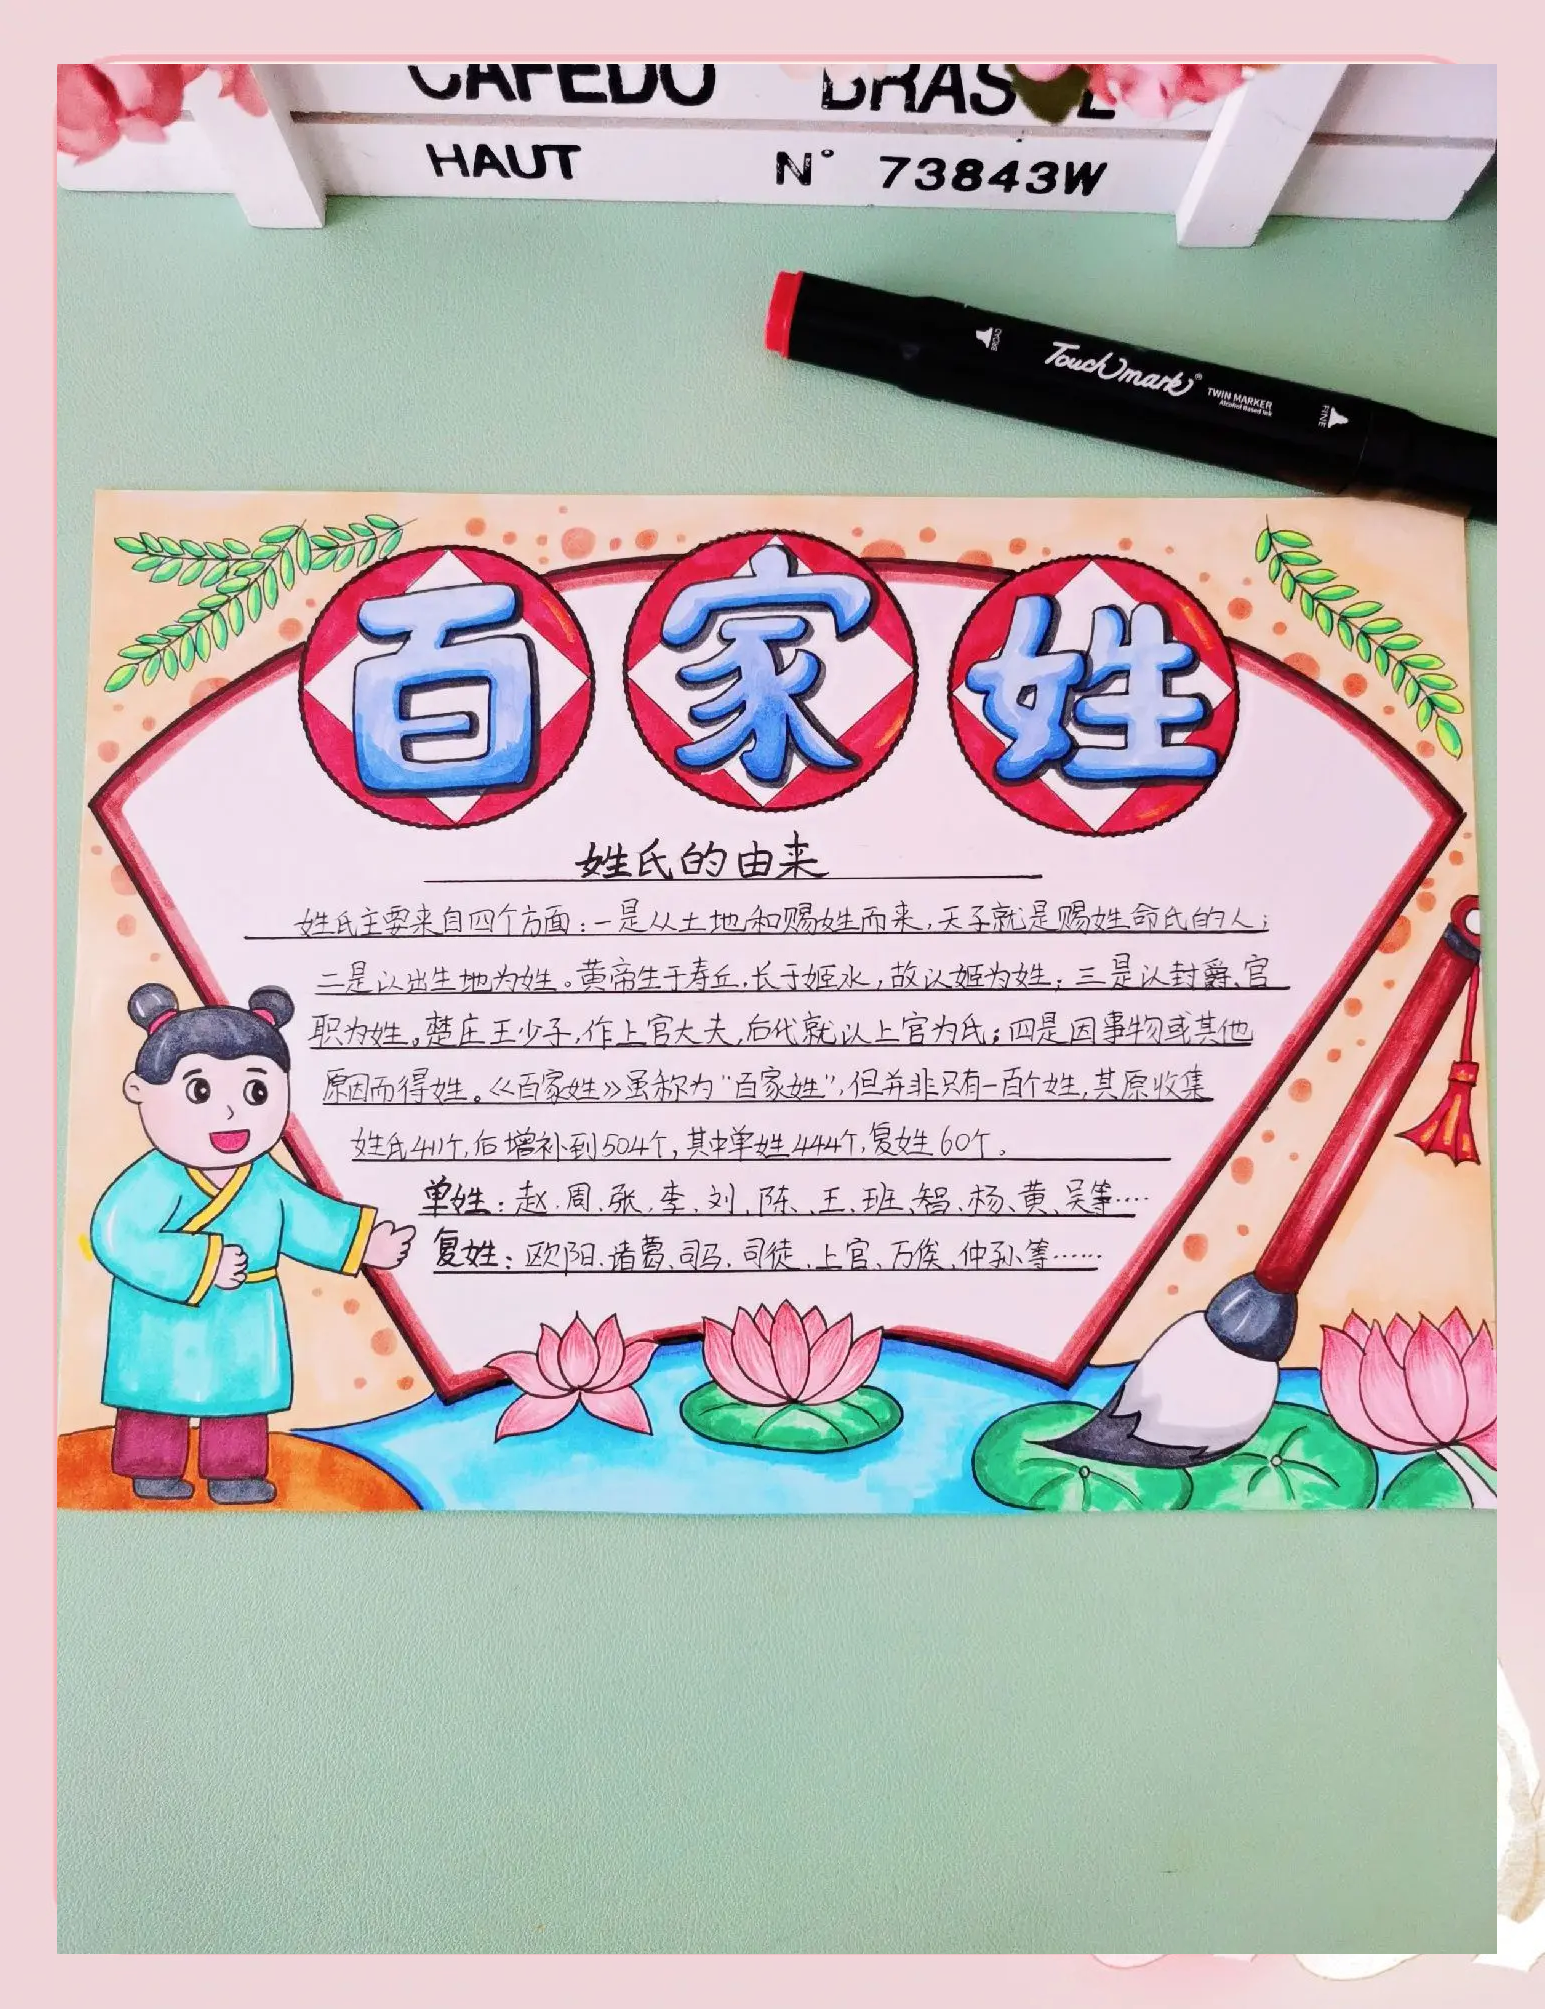 HAUT N° 73843W
Touchmark® TWIN MARKER
Alcohol Based Ink
FINE
百家姓
姓氏的由来
姓氏主要来自四个方面:一是从土地和赐姓而来,天子就是赐姓命氏的人;
二是以出生地为姓。黄帝生于寿丘,长于姬水,故以姬为姓;三是以封爵、官
职为姓。楚庄王少子,作上官大夫,后代就以上官为氏;四是因事物或其他
原因而得姓。《百家姓》虽称为“百家姓”,但并非只有一百个姓,其原收集
姓氏411个,后增补到504个,其中单姓444个,复姓60个。
单姓:赵、周、张、李、刘、陈、王、班、智、杨、黄、吴等……
复姓:欧阳、诸葛、司马、司徒、上官、万俟、仲孙等……